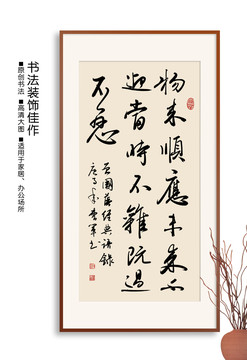 书法装饰佳作
■原创书法 ■高清大图 ■适用于家居、办公场所
物来顺應未来不
迎當時不雜既過
不恋
曾國藩經典語錄